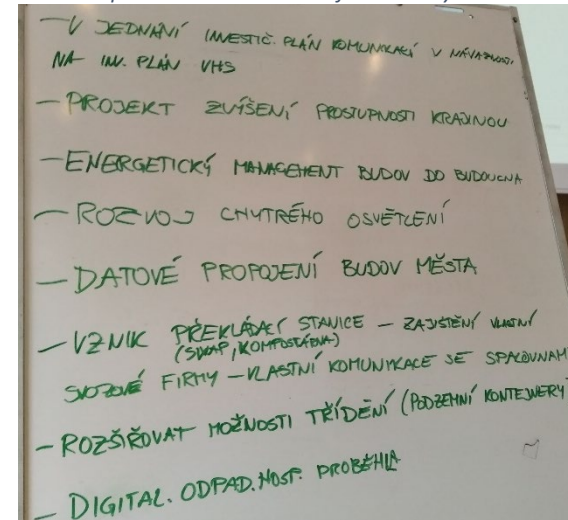 - V JEDNÁNÍ INVESTIČ. PLÁN KOMUNIKACÍ V NÁVAZNOSTI
NA INV. PLÁN VHS
- PROJEKT ZVÍŠENÍ PROSTUPNOSTI KRAJINOU
- ENERGETICKÝ MANAGEMENT BUDOV DO BUDOUCNA
- ROZVOJ CHYTRÉHO OSVĚTLENÍ
- DATOVÉ PROPOJENÍ BUDOV MĚSTA
- VZNIK PŘEKLÁDACÍ STANICE - ZAJIŠTĚNÍ VLASTNÍ
(SWAP, KOMPOSTÁRNA)
SVOZOVÉ FIRMY - VLASTNÍ KOMUNIKACE SE SPALOVNAM
- ROZŠIŘOVAT MOŽNOSTI TŘÍDĚNÍ (PODZEMNÍ KONTEJNERY)
- DIGITAL. ODPAD. HOSP. PROBĚHLA